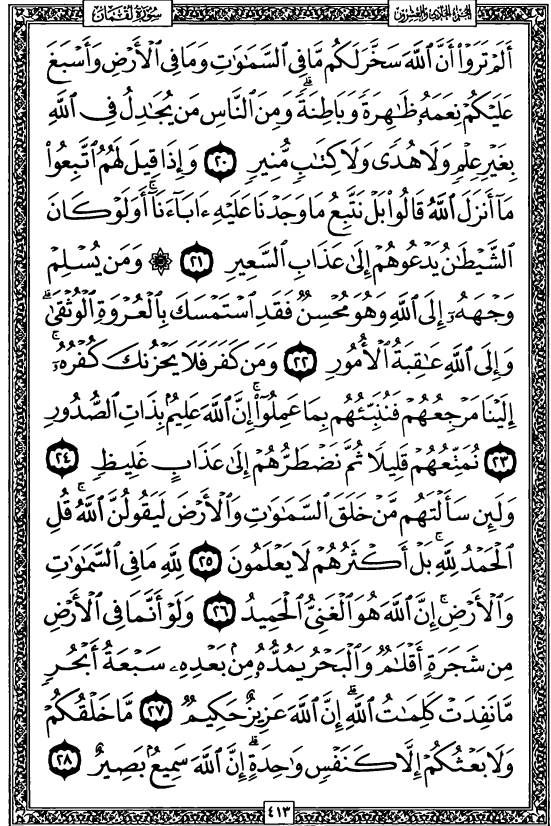 الجزء الحادي والعشرون
سورة لقمان
أَلَمْ تَرَوْا۟ أَنَّ ٱللَّهَ سَخَّرَ لَكُم مَّا فِى ٱلسَّمَٰوَٰتِ وَمَا فِى ٱلْأَرْضِ وَأَسْبَغَ
عَلَيْكُمْ نِعَمَهُۥ ظَٰهِرَةً وَبَاطِنَةً ۗ وَمِنَ ٱلنَّاسِ مَن يُجَٰدِلُ فِى ٱللَّهِ
بِغَيْرِ عِلْمٍ وَلَا هُدًى وَلَا كِتَٰبٍ مُّنِيرٍ ٢٠ وَإِذَا قِيلَ لَهُمُ ٱتَّبِعُوا۟
مَآ أَنزَلَ ٱللَّهُ قَالُوا۟ بَلْ نَتَّبِعُ مَا وَجَدْنَا عَلَيْهِ ءَابَآءَنَآ ۚ أَوَلَوْ كَانَ
ٱلشَّيْطَٰنُ يَدْعُوهُمْ إِلَىٰ عَذَابِ ٱلسَّعِيرِ ٢١ ۞ وَمَن يُسْلِمْ
وَجْهَهُۥٓ إِلَى ٱللَّهِ وَهُوَ مُحْسِنٌ فَقَدِ ٱسْتَمْسَكَ بِٱلْعُرْوَةِ ٱلْوُثْقَىٰ ۗ
وَإِلَى ٱللَّهِ عَٰقِبَةُ ٱلْأُمُورِ ٢٢ وَمَن كَفَرَ فَلَا يَحْزُنكَ كُفْرُهُۥٓ ۚ
إِلَيْنَا مَرْجِعُهُمْ فَنُنَبِّئُهُم بِمَا عَمِلُوٓا۟ ۚ إِنَّ ٱللَّهَ عَلِيمٌۢ بِذَاتِ ٱلصُّدُورِ
٢٣ نُمَتِّعُهُمْ قَلِيلًا ثُمَّ نَضْطَرُّهُمْ إِلَىٰ عَذَابٍ غَلِيظٍ ٢٤
وَلَئِن سَأَلْتَهُم مَّنْ خَلَقَ ٱلسَّمَٰوَٰتِ وَٱلْأَرْضَ لَيَقُولُنَّ ٱللَّهُ ۚ قُلِ
ٱلْحَمْدُ لِلَّهِ ۚ بَلْ أَكْثَرُهُمْ لَا يَعْلَمُونَ ٢٥ لِلَّهِ مَا فِى ٱلسَّمَٰوَٰتِ
وَٱلْأَرْضِ ۚ إِنَّ ٱللَّهَ هُوَ ٱلْغَنِىُّ ٱلْحَمِيدُ ٢٦ وَلَوْ أَنَّمَا فِى ٱلْأَرْضِ
مِن شَجَرَةٍ أَقْلَٰمٌ وَٱلْبَحْرُ يَمُدُّهُۥ مِنۢ بَعْدِهِۦ سَبْعَةُ أَبْحُرٍ
مَّا نَفِدَتْ كَلِمَٰتُ ٱللَّهِ ۗ إِنَّ ٱللَّهَ عَزِيزٌ حَكِيمٌ ٢٧ مَّا خَلْقُكُمْ
وَلَا بَعْثُكُمْ إِلَّا كَنَفْسٍ وَٰحِدَةٍ ۗ إِنَّ ٱللَّهَ سَمِيعٌۢ بَصِيرٌ ٢٨
٤١٣